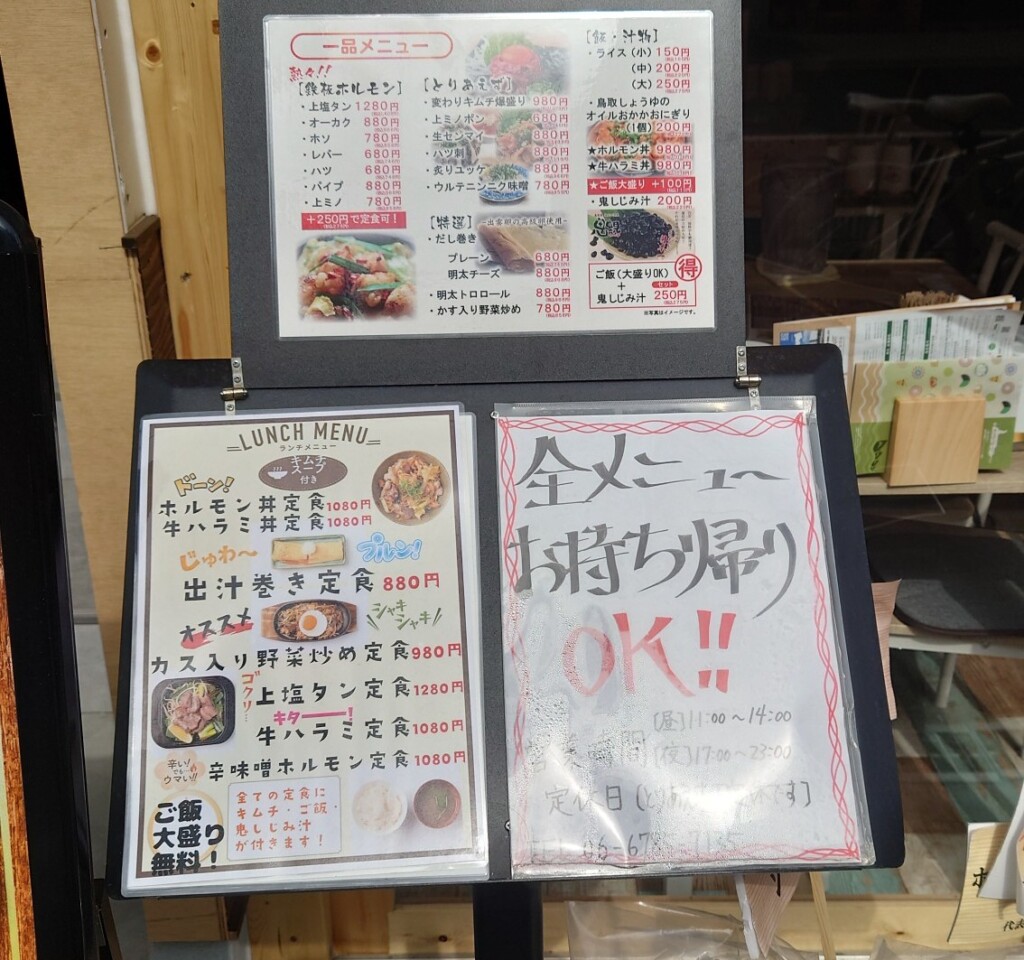 一品メニュー
熱々!!
[鉄板ホルモン]
・上塩タン 1280円
・オーカク 880円
・ホソ 780円
・レバー 680円
・ハツ 680円
・パイプ 880円
・上ミノ 780円
+250円で定食可!
[とりあえず]
・変わりキムチ爆盛り 980円
・上ミノポン 680円
・生センマイ 680円
・ハツ刺 780円
・炙りユッケ 980円
・ウルテニンニク味噌 780円
[特選]
・だし巻き
プレーン 680円
明太チーズ 880円
・明太トロロール 880円
・かす入り野菜炒め 780円
[飯・汁物]
・ライス(小) 150円
(中) 200円
(大) 250円
・鳥取しょうゆの
オイルおかかおにぎり
(1個) 200円
★ホルモン丼 980円
★牛ハラミ丼 980円
★ご飯大盛り +100円
・鬼しじみ汁 200円
ご飯(大盛りOK)
+
鬼しじみ汁
得
セット
250円
※写真はイメージです。
LUNCH MENU
ランチメニュー
キムチ
スープ
付き
ドーン!
ホルモン丼定食1080円
牛ハラミ丼定食1080円
じゅわ〜
プルン!
出汁巻き定食 880円
オススメ
シャキ
シャキ!
カス入り野菜炒め定食980円
ゴクリ…
上塩タン定食1280円
キター!
牛ハラミ定食1080円
辛い!
でも
ウマい!!
辛味噌ホルモン定食1080円
ご飯
大盛り
無料!
全ての定食に
キムチ・ご飯・
鬼しじみ汁
が付きます!
全メニュー
お持ち帰り
OK!!
営業時間
(昼)11:00〜14:00
(夜)17:00〜23:00
定休日